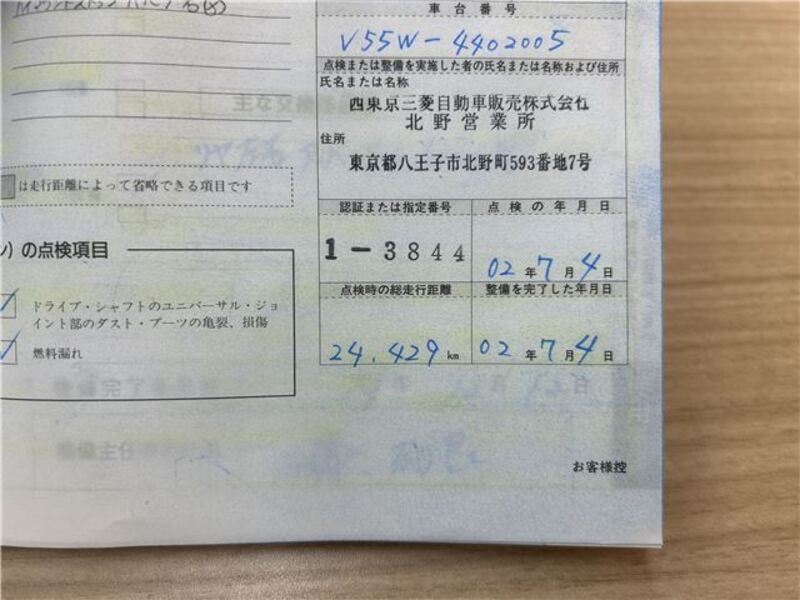 車台番号
V55W-4402005
点検または整備を実施した者の氏名または名称および住所
氏名または名称
西東京三菱自動車販売株式会社
北野営業所
住所
東京都八王子市北野町593番地7号
は走行距離によって省略できる項目です
認証または指定番号
点検の年月日
1-3844
02年7月4日
の点検項目
点検時の総走行距離
整備を完了した年月日
ドライブ・シャフトのユニバーサル・ジョ
イント部のダスト・ブーツの亀裂、損傷
24,429km
02年7月4日
燃料漏れ
お客様控